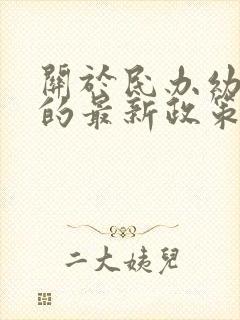 關於民办幼
的最新政策
二大姨兒